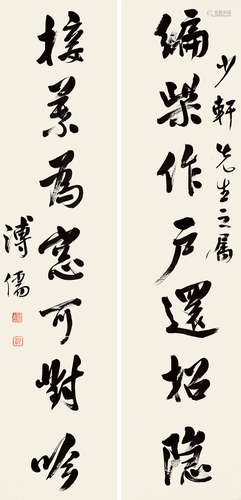 少軒先生之属
編柴作戶還招隱
接葉為窓可對吟
溥儒